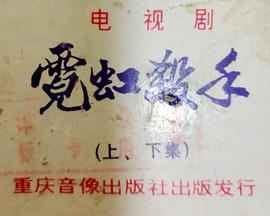 电视剧
霓虹殺手
(上、下集)
重庆音像出版社出版发行